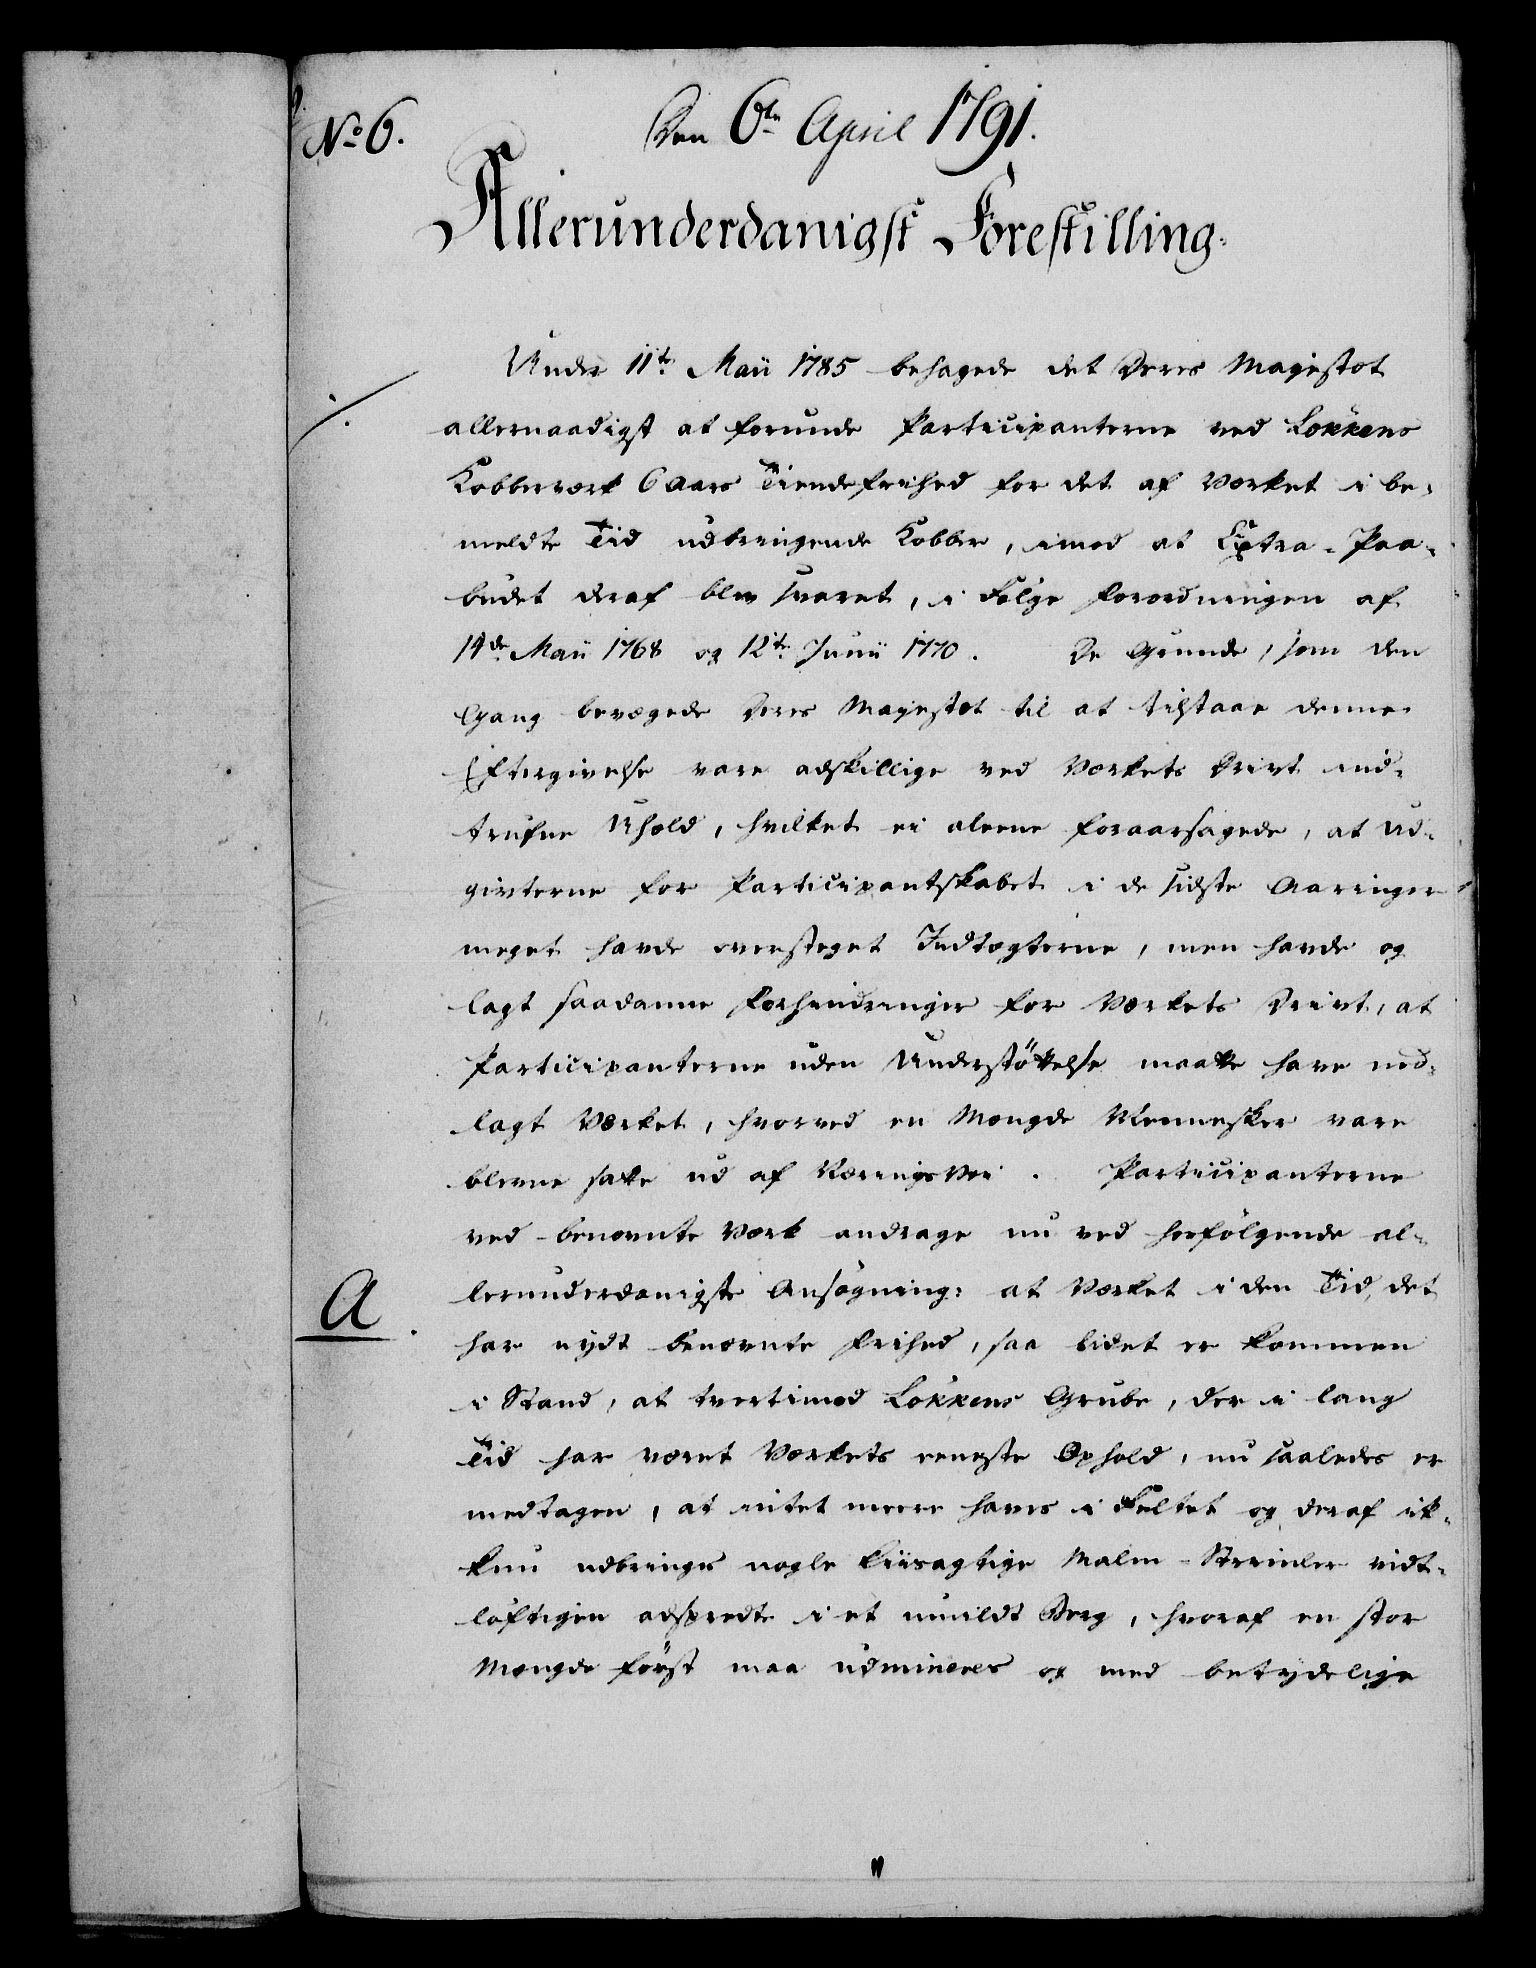 No 6.
Den 6te April 1791.
Allerunderdanigst Forestilling.
Under 11te Maii 1785 behagede det Deres Majestæt
allernaadigst at forunde Participanterne ved Løkkens
Kobberværk 6 Aars Tiendefrihed for det af Værket i be-
meldte Tid udbringende Kobber, imod at Extra-Paa-
budet deraf blev svaret, i Følge Forordningen af
14de Maii 1768 og 12te Junii 1770. De Grunde, som den
Gang bevægede Deres Majestæt til at tilstaae denne
Eftergivelse vare adskillige ved Værkets Drivt ind-
trufne Uheld, hvilket ei aleene foraarsagede, at Ud-
givterne for Participantskabet i de sidste Aaringer
meget havde oversteget Indtægterne, men havde og
lagt saadanne Forhindringer for Værkets Drivt, at
Participanterne uden Understøttelse maatte have ned-
lagt Værket, hvorved en Mængde Mennesker vare
blevne satte ud af Næringsvei. Participanterne
ved benævnte Værk andrage nu ved hosfølgende al-
A
lerunderdanigste Ansøgning: at Værket i den Tid, det
har nydt benævnte Frihed, saa lidet er kommen
i Stand, at tvertimod Løkkens Grube, der i lang
Tid har været Værkets eeneste Ophold, nu saaledes er
medtagen, at intet meere haves i Feltet og deraf ik-
kun udbringes nogle kiisagtige Malm-Streiuler vidt-
løftigen adspredte i et umildt Berg, hvoraf en stor
Mængde først maa udmineres og med betydelige